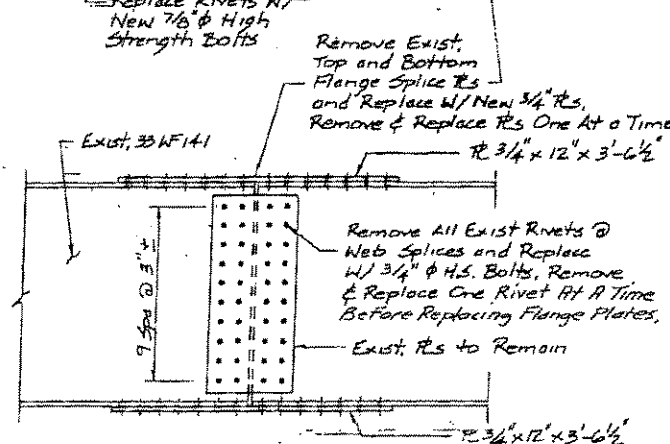 Replace Rivets W/
New 7/8" φ High
Strength Bolts
Remove Exist.
Top and Bottom
Flange Splice ℄s
and Replace W/ New 3/4" ℄s,
Remove & Replace ℄s One At a Time
Exist. 33 WF 141
℄ 3/4" x 12" x 3'-6½"
Remove All Exist Rivets @
Web Splices and Replace
W/ 3/4" φ H.S. Bolts, Remove
& Replace One Rivet At A Time
Before Replacing Flange Plates.
9 Spa @ 3"±
Exist. ℄s to Remain
℄ 3/4" x 12" x 3'-6½"